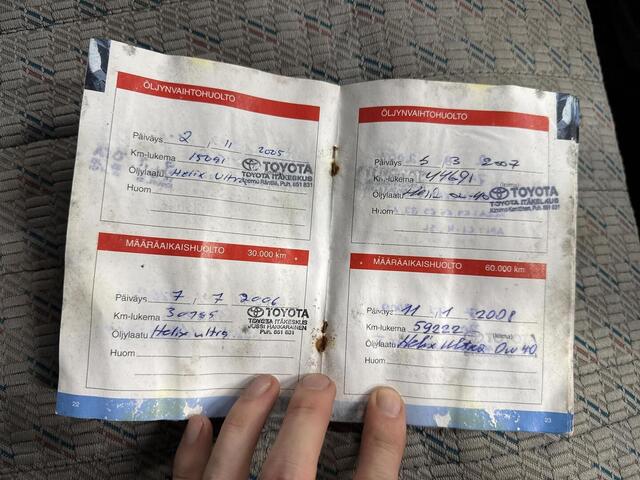 ÖLJYNVAIHTOHUOLTO
Päiväys 2 . 11 2005
Km-lukema 15091
Öljylaatu Helix Ultra
TOYOTA
TOYOTA ITÄKESKUS
Puh. 651 631
Huom
MÄÄRÄAIKAISHUOLTO 30.000 km
Päiväys 7 . 7 2006
Km-lukema 30755
Öljylaatu Helix ultra
TOYOTA
TOYOTA ITÄKESKUS
Puh. 651 631
Huom
22
ÖLJYNVAIHTOHUOLTO
Päiväys 5 3 2007
Km-lukema 44691
Öljylaatu Helix 0w-40
TOYOTA
TOYOTA ITÄKESKUS
Puh. 651 631
Huom
MÄÄRÄAIKAISHUOLTO 60.000 km
Päiväys 11 . 1 2008
Km-lukema 59222
(leima)
Öljylaatu Helix Ultra 0w40
Huom
23